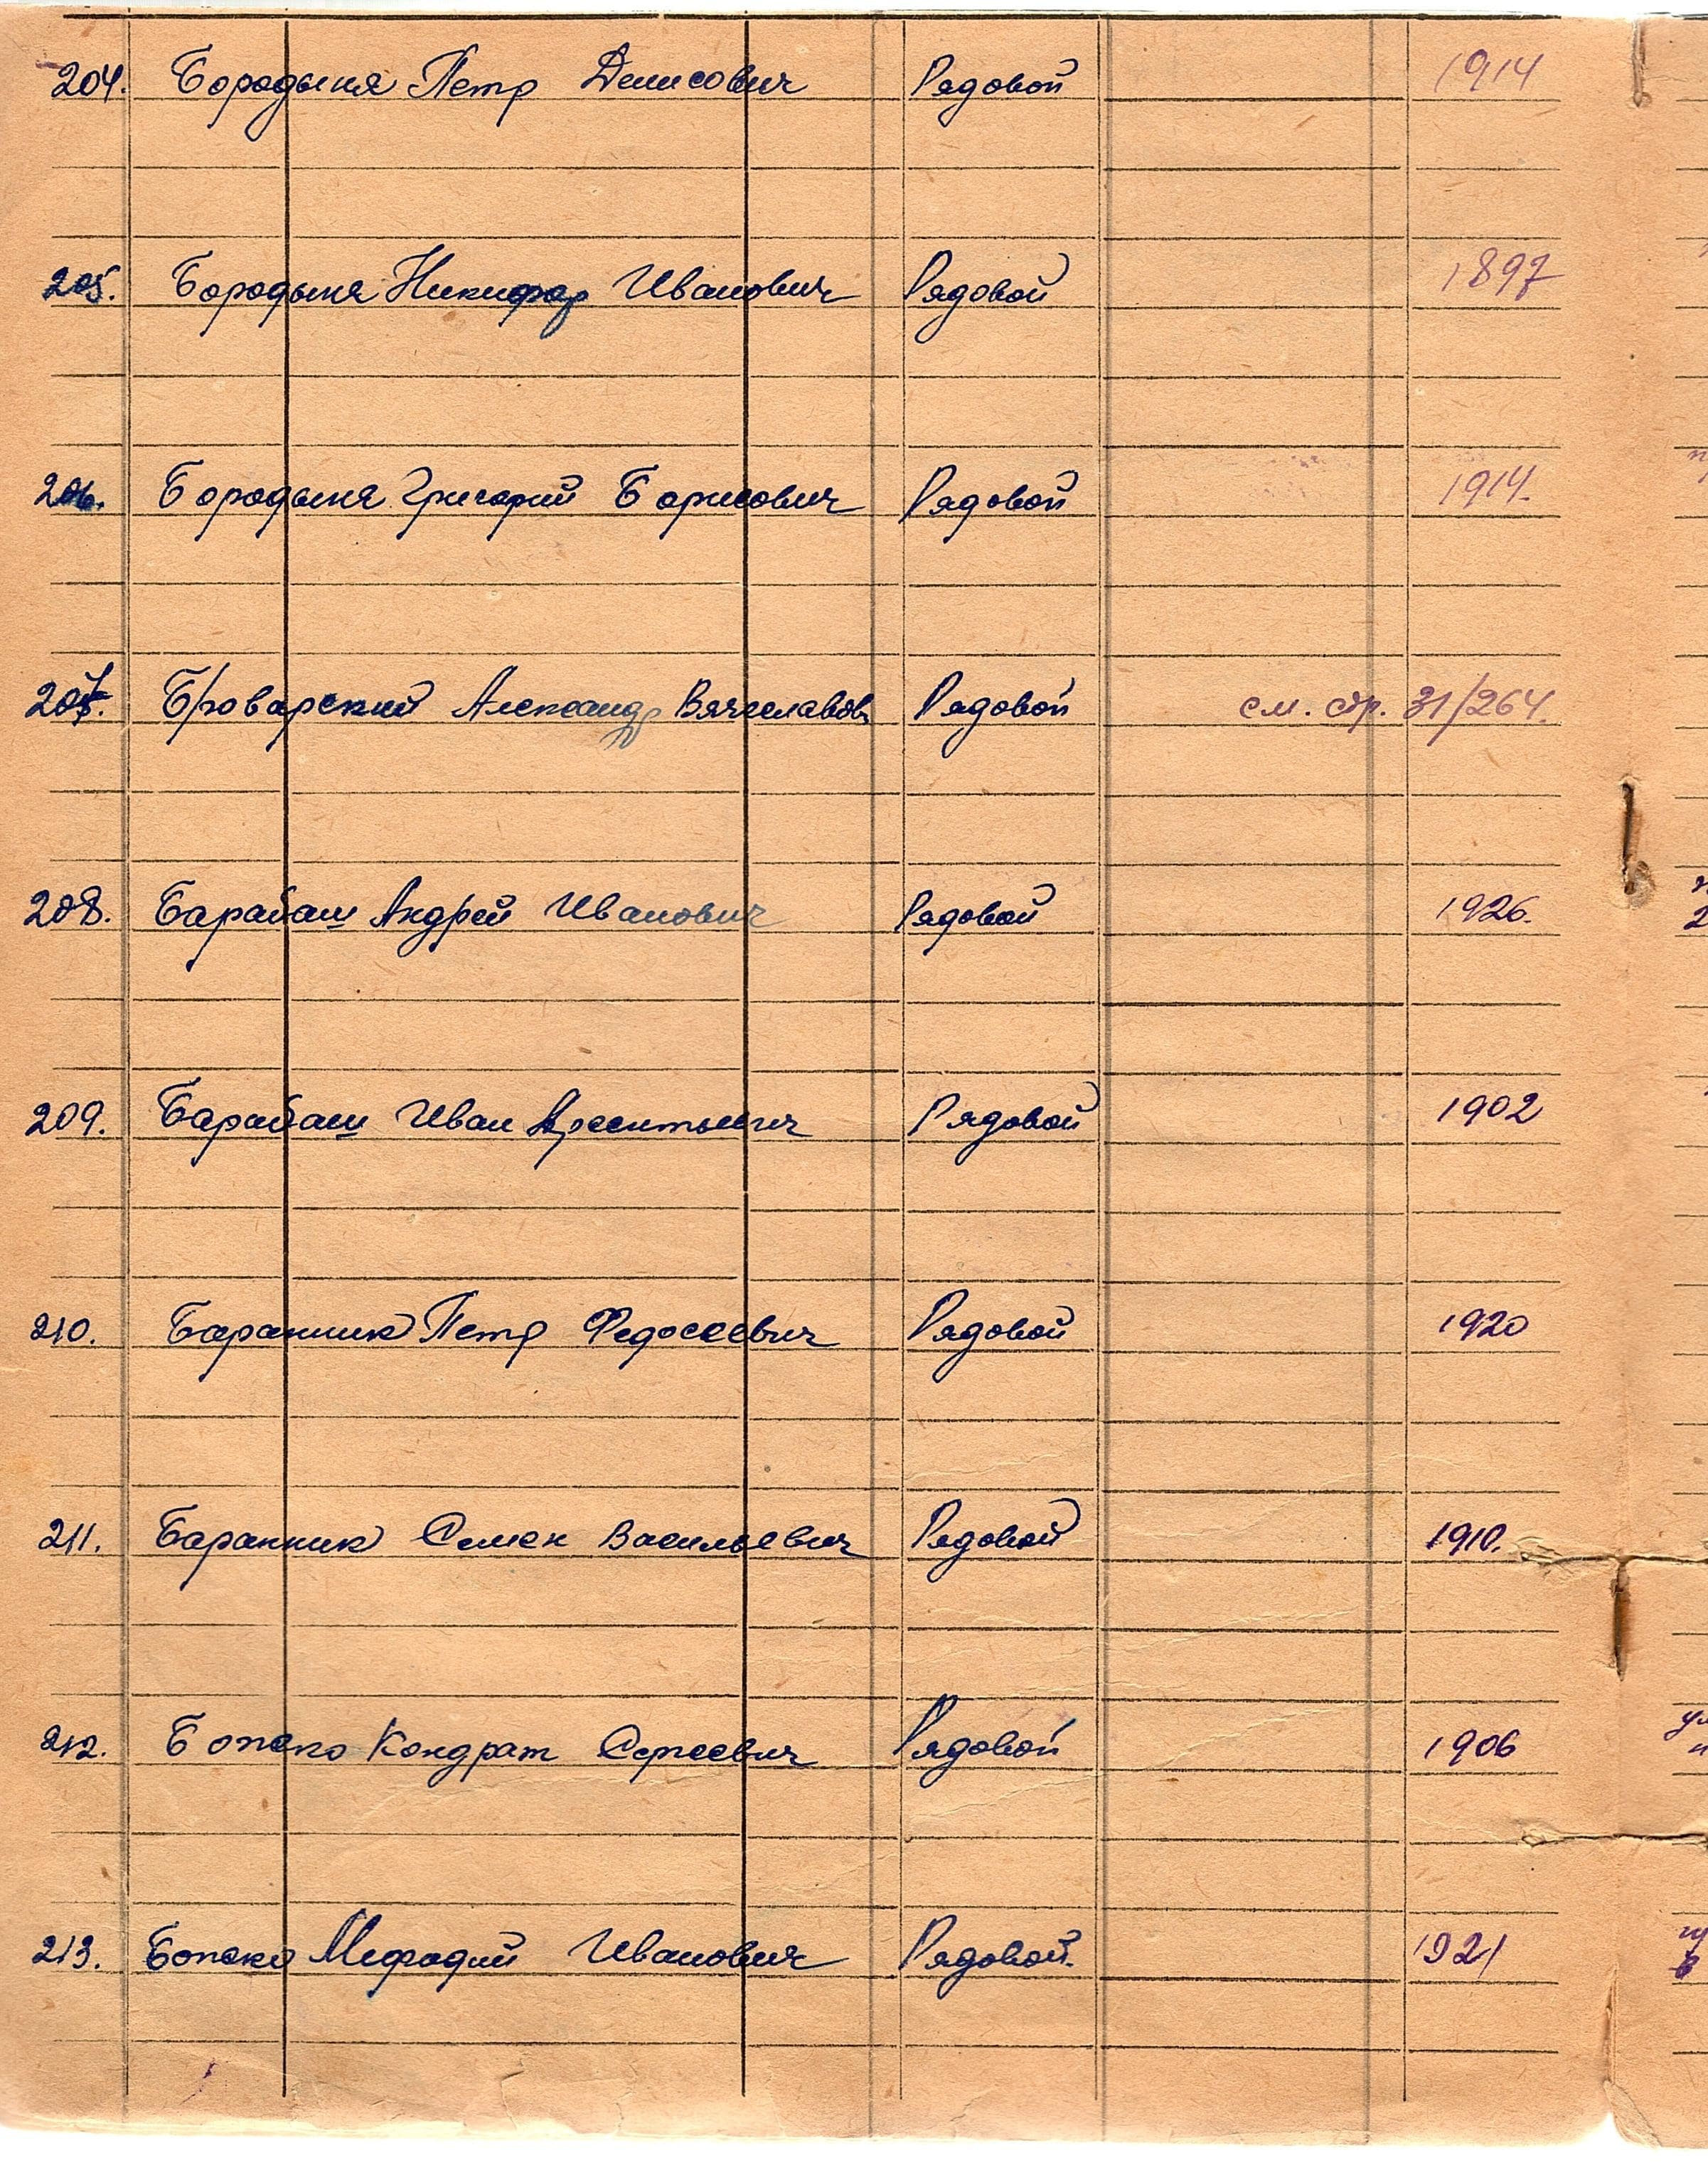 204. Бородыня Петр Денисович Рядовой 1914
205. Бородыня Никифор Иванович Рядовой 1897
206. Бородыня Григорий Борисович Рядовой 1914.
207. Броварский Александр Вячеславов Рядовой см. стр. 31/264.
208. Барабаш Андрей Иванович Рядовой 1926.
209. Барабаш Иван Рядовой 1902
210. Баранник Петр Федосеевич Рядовой 1920
211. Баранник Семен Васильевич Рядовой 1910.
212. Бопско Кондрат Сергеевич Рядовой 1906
213. Бопско Мефодий Иванович Рядовой. 1921